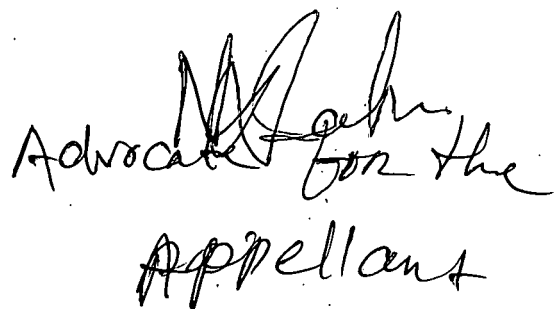 Advocate for the
Appellant